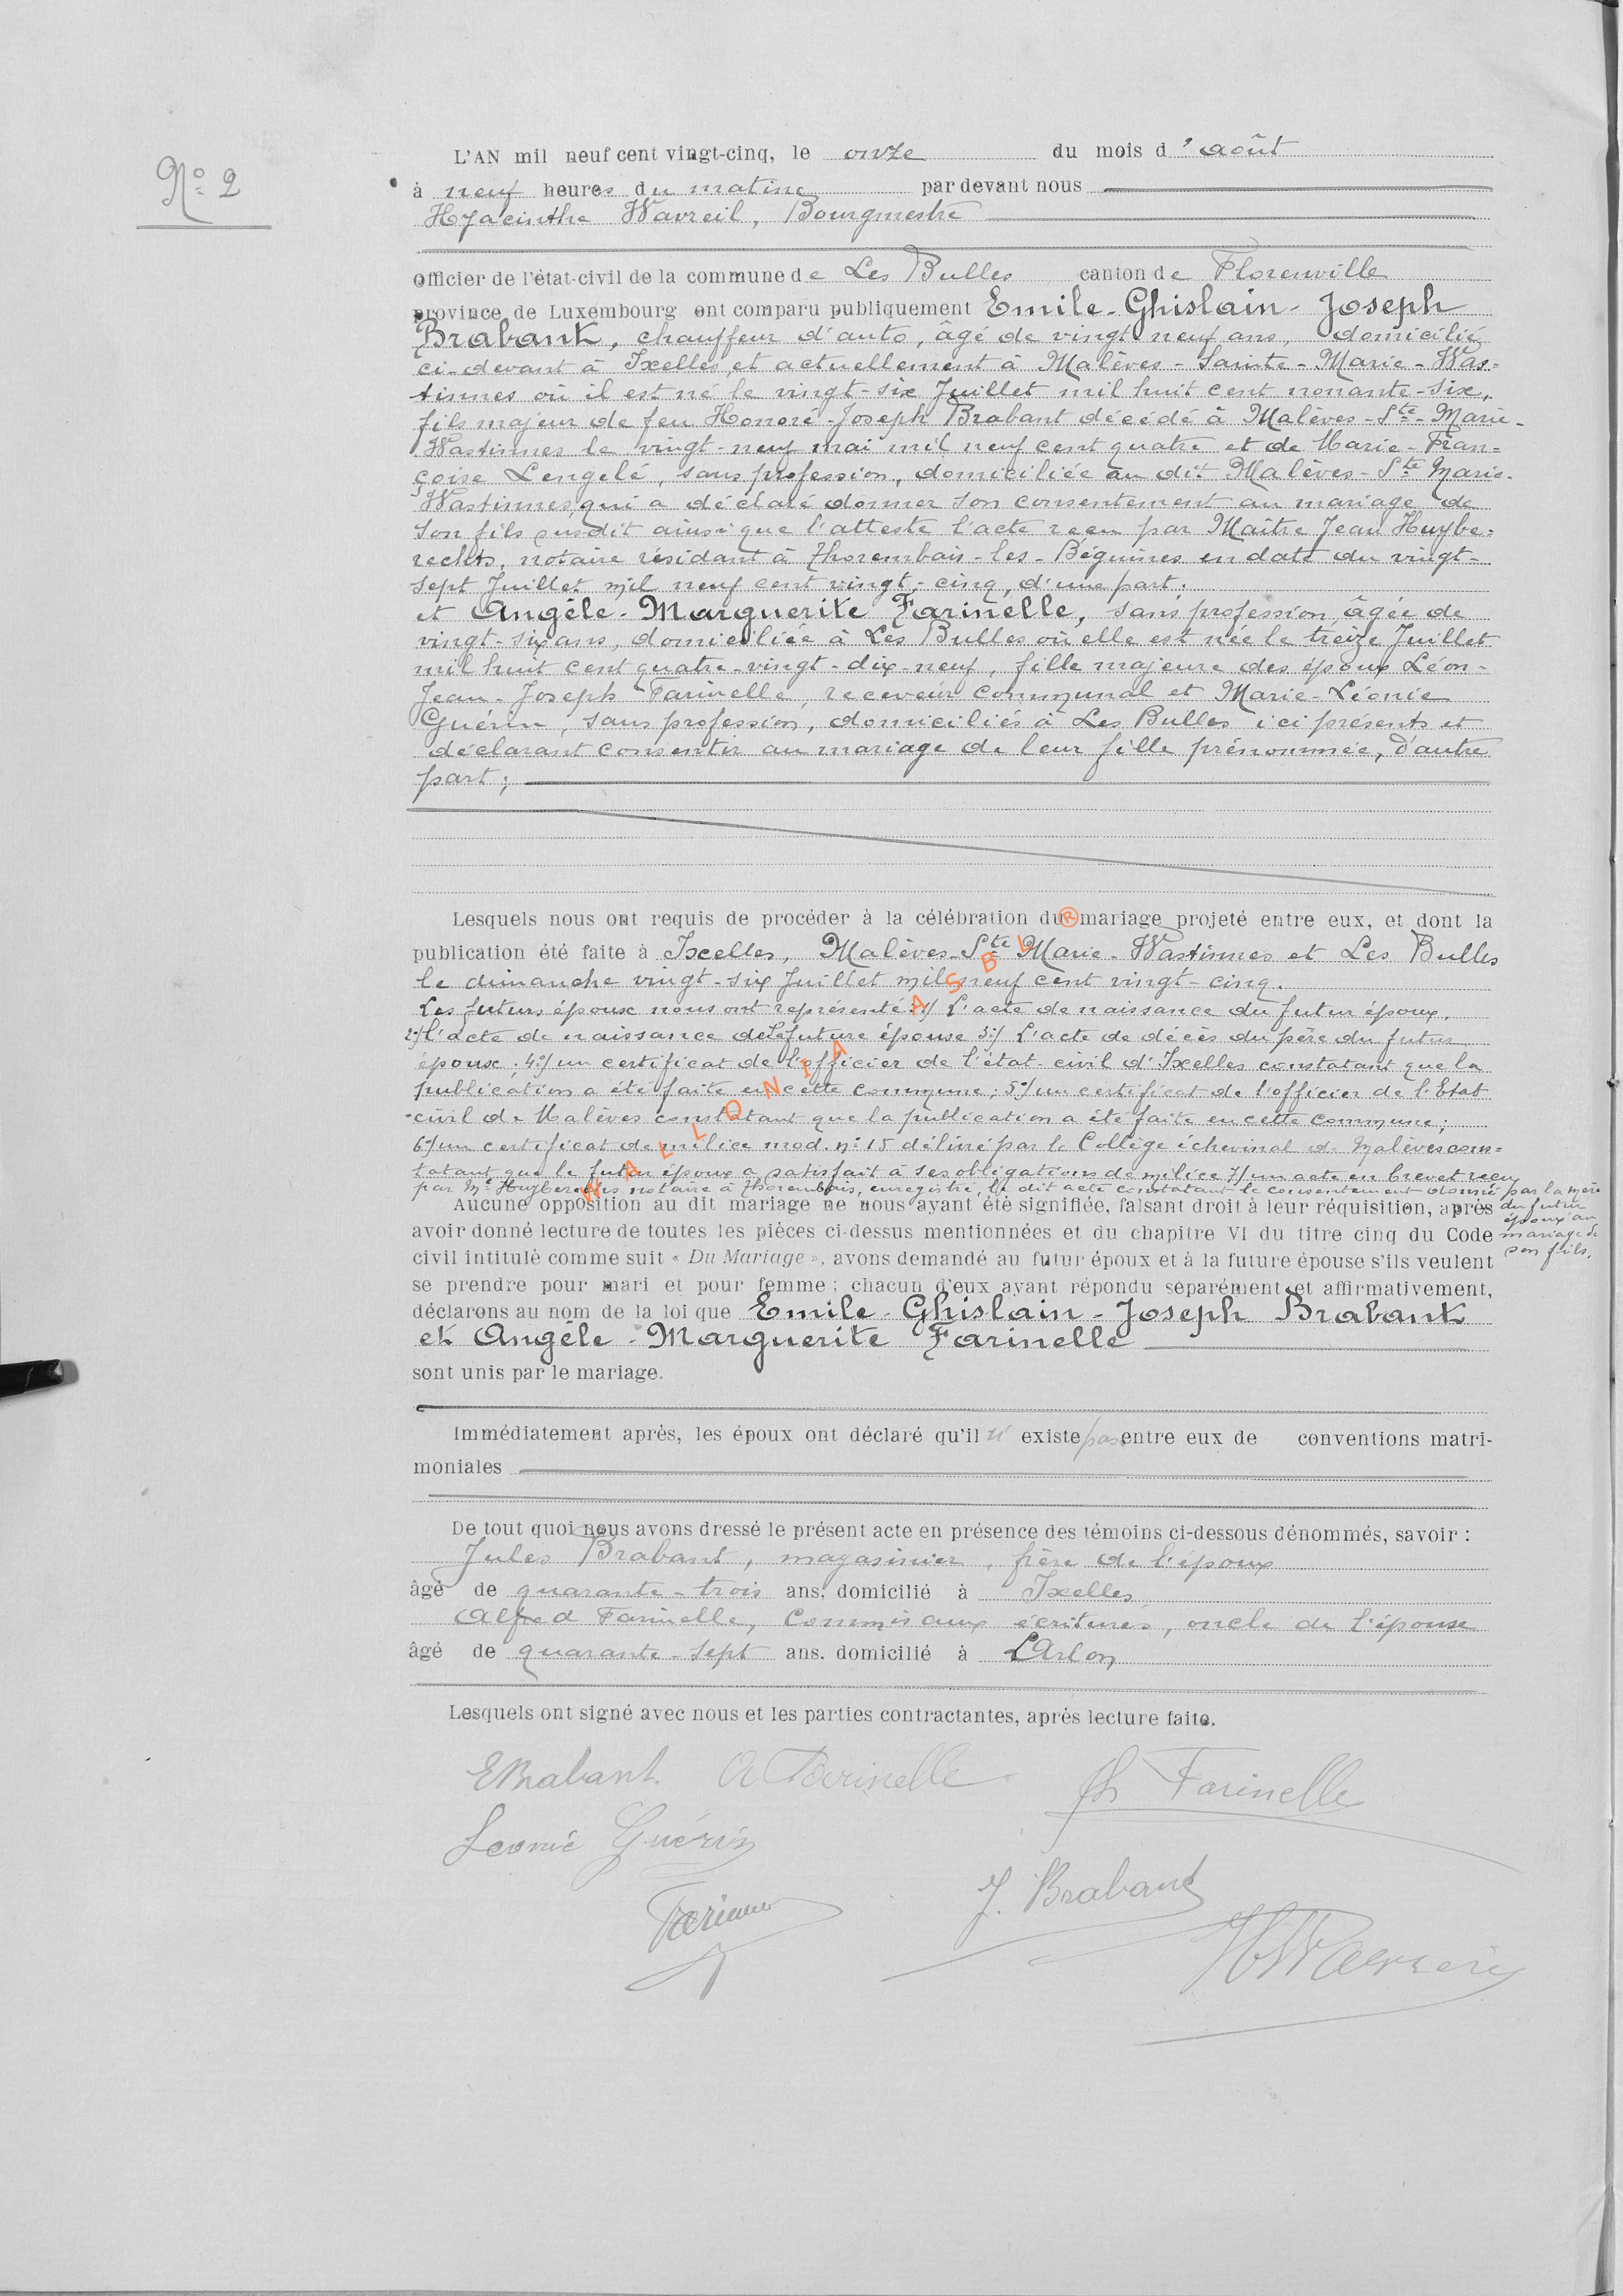 N° 2
L'AN mil neuf cent vingt-cinq, le onze du mois d'août
à neuf heures du matin par devant nous
Hyacinthe Wavreil, Bourgmestre
Officier de l'état-civil de la commune de Les Bulles canton de Florenville
province de Luxembourg ont comparu publiquement Emile-Ghislain-Joseph
Brabant, chauffeur d'auto, âgé de vingt neuf ans, domicilié
ci-devant à Ixelles et actuellement à Malèves-Sainte-Marie-Was=
tinnes où il est né le vingt-six Juillet mil huit cent nonante-six,
fils majeur de feu Honoré-Joseph Brabant décédé à Malèves-Ste-Marie-
Wastinnes le vingt-neuf mai mil neuf cent quatre et de Marie-Fran=
çoise Lengelé, sans profession, domiciliée au dit Malèves-Ste Marie-
Wastinnes, qui a déclaré donner son consentement au mariage de
son fils susdit ainsi que l'atteste l'acte reçu par Maître Jean Huybe=
rechts, notaire résidant à Thorembais-les-Béguines en date du vingt-
sept Juillet mil neuf cent vingt-cinq, d'une part;
et Angèle-Marguerite Farinelle, sans profession, âgée de
vingt-six ans, domiciliée à Les Bulles où elle est née le treize Juillet
mil huit cent quatre-vingt-dix-neuf, fille majeure des époux Léon-
Jean-Joseph Farinelle, receveur communal et Marie-Léonie
Guérin, sans profession, domiciliés à Les Bulles ici présents et
déclarant consentir au mariage de leur fille prénommée, d'autre
part;
Lesquels nous ont requis de procéder à la célébration du mariage projeté entre eux, et dont la
publication été faite à Ixelles, Malèves-Ste Marie-Wastinnes et Les Bulles
le dimanche vingt-six Juillet mil neuf cent vingt-cinq.
Les futurs époux nous ont représenté: 1°/ L'acte de naissance du futur époux,
2°/ l'acte de naissance de la future épouse 3°/ L'acte de décès du père du futur
époux; 4°/ un certificat de l'officier de l'état-civil d'Ixelles constatant que la
publication a été faite en cette commune; 5°/ un certificat de l'officier de l'Etat
-civil de Malèves constatant que la publication a été faite en cette commune;
6°/ un certificat de milice mod. n° 15 délivré par le Collège échevinal de Malèves cons=
tatant que le futur époux a satisfait à ses obligations de milice 7/ un acte en brevet reçu
par Me Huyberechts notaire à Thorembais, enregistré, le dit acte constatant le consentement donné par la mère
du futur
époux au
mariage de
son fils.
Aucune opposition au dit mariage ne nous ayant été signifiée, faisant droit à leur réquisition, après
avoir donné lecture de toutes les pièces ci-dessus mentionnées et du chapitre VI du titre cinq du Code
civil intitulé comme suit « Du Mariage », avons demandé au futur époux et à la future épouse s'ils veulent
se prendre pour mari et pour femme; chacun d'eux ayant répondu séparément et affirmativement,
déclarons au nom de la loi que Emile-Ghislain-Joseph Brabant
et Angèle-Marguerite Farinelle
sont unis par le mariage.
Immédiatement après, les époux ont déclaré qu'il n'existe pas entre eux de conventions matri-
moniales
De tout quoi nous avons dressé le présent acte en présence des témoins ci-dessous dénommés, savoir :
Jules Brabant, magasinier, frère de l'époux
âgé de quarante-trois ans, domicilié à Ixelles
Alfred Farinelle, Commis aux écritures, oncle de l'épouse
âgé de quarante-sept ans. domicilié à Arlon
Lesquels ont signé avec nous et les parties contractantes, après lecture faite.
EBrabant. A Farinelle Farinelle
Leonie Guérin
J. Brabant
WALLONIA ASBL ®